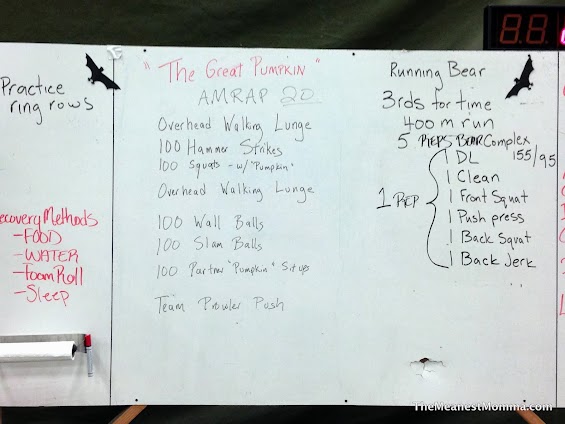 Practice
ring rows
ecovery Methods
-FOOD
-WATER
-Foam Roll
-Sleep
"The Great Pumpkin"
AMRAP 20
Overhead Walking Lunge
100 Hammer Strikes
100 Squats - w/ "Pumpkin"
Overhead Walking Lunge
100 Wall Balls
100 Slam Balls
100 Partner "Pumpkin" Situps
Team Prowler Push
Running Bear
3rds for time
400 m run
5 REPS BEAR Complex
1 DL 155/95
1 Clean
1 Front Squat
1 REP
1 Push press
1 Back Squat
1 Back Jerk
TheMeanestMomma.com